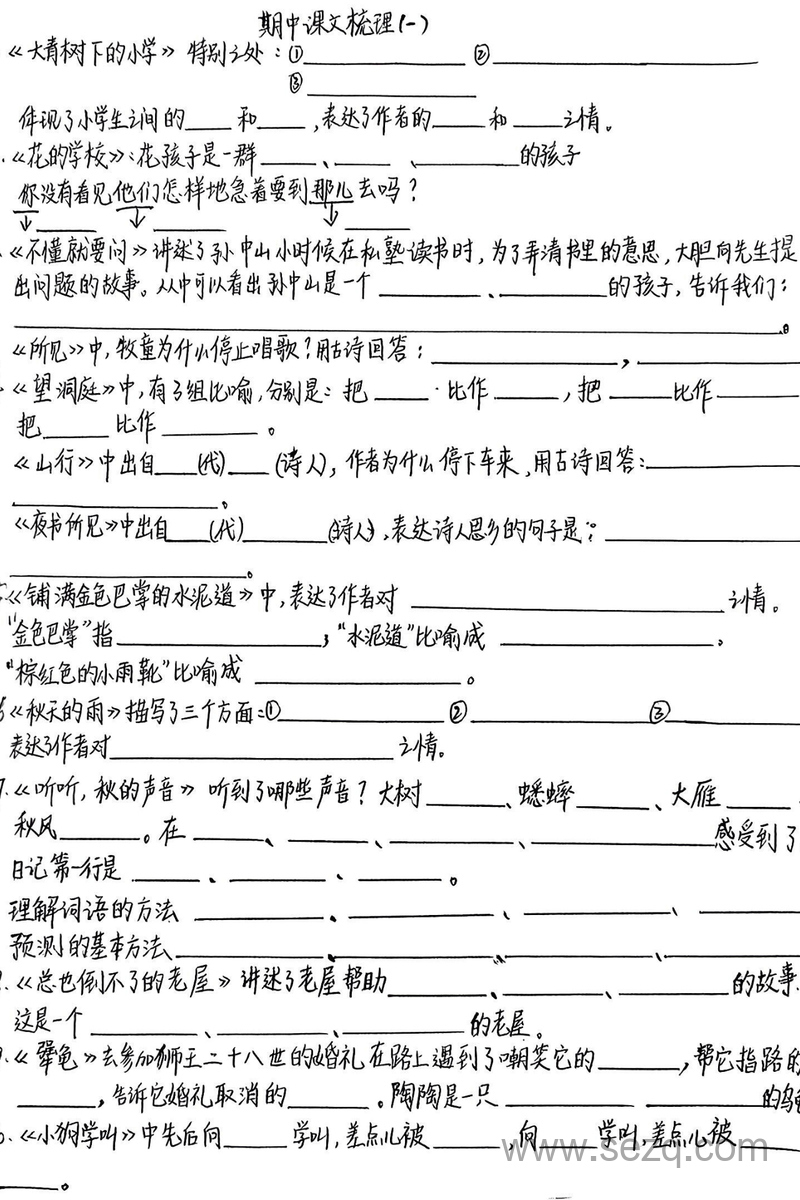 期中课文梳理(一)
《大青树下的小学》特别之处：①________ ②________
③________
体现了小学生之间的____和____，表达了作者的____和____之情。
.《花的学校》：花孩子是一群____、____、________的孩子
你没有看见他们怎样地急着要到那儿去吗？
↓____ ↓____ ↓____
、《不懂就要问》讲述了孙中山小时候在私塾读书时，为了弄清书里的意思，大胆向先生提
出问题的故事。从中可以看出孙中山是一个________、________的孩子，告诉我们：
________________。
《所见》中，牧童为什么停止唱歌？用古诗回答：________，________
《望洞庭》中，有3组比喻，分别是：把____比作____，把____比作____
把____比作____。
《山行》中出自____(代)____(诗人)，作者为什么停下车来，用古诗回答：________
________。
《夜书所见》中出自____(代)____(诗人)，表达诗人思乡的句子是：________
________。
《铺满金色巴掌的水泥道》中，表达了作者对________之情。
"金色巴掌"指________；"水泥道"比喻成________。
"棕红色的小雨靴"比喻成________。
《秋天的雨》描写了三个方面：①________ ②________ ③________
表达了作者对________之情。
7.《听听，秋的声音》听到了哪些声音？大树____、蟋蟀____、大雁____
秋风____。在____、____、____、________感受到了
日记第一行是____、____、____。
理解词语的方法________、________、________
预测的基本方法________、________、________
《总也倒不了的老屋》讲述了老屋帮助____、____、____的故事.
这是一个____、____、____的老屋。
《犟龟》去参加狮王二十八世的婚礼在路上遇到了嘲笑它的____，帮它指路的
____，告诉它婚礼取消的____。陶陶是一只____ ____的乌龟
《小狗学叫》中先后向____学叫，差点儿被____，向____学叫，差点儿被____
____。
www.sezq.com